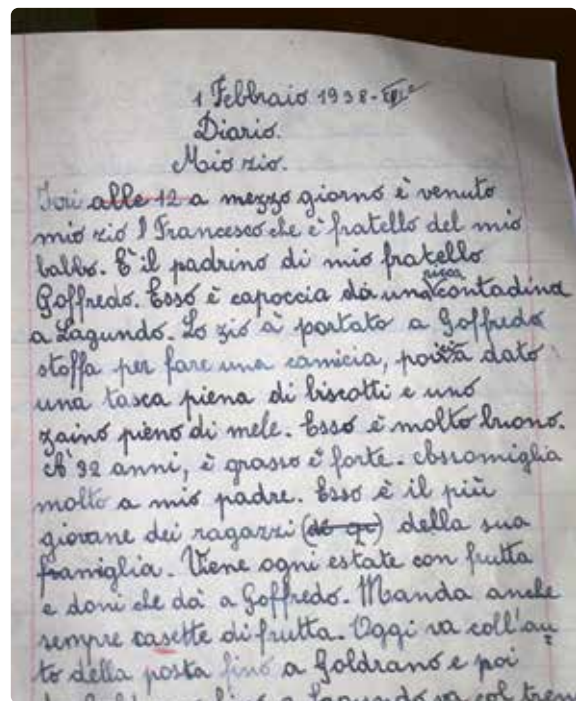 1 Febbraio 1938-XVIº
Diario.
Mio zio.
Ieri alle 12 a mezzo giorno è venuto
mio zio Francesco che è fratello del mio
babbo. È il padrino di mio fratello
Goffredo. Esso è capoccia da una ricca contadina
a Lagundo. Lo zio à portato a Goffredo
stoffa per fare una camicia, poi à dato
una tasca piena di biscotti e uno
zaino pieno di mele. Esso è molto buono.
A' 32 anni, è grasso e forte. Assomiglia
molto a mio padre. Esso è il più
giovane dei ragazzi della sua
framiglia. Viene ogni estate con frutta
e doni che dà a Goffredo. Manda anche
sempre casette di frutta. Oggi va coll'au
to della posta fino a Goldrano e poi
fino a Lagundo va col tren